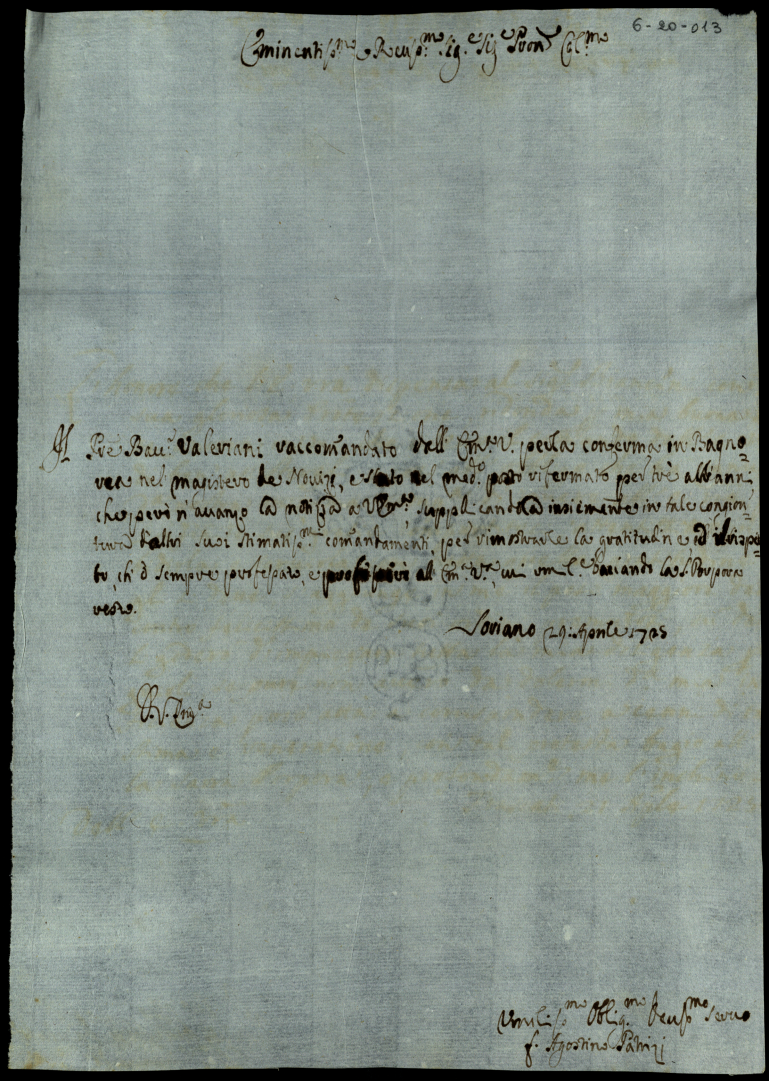 6-20-013
Eminentiss.mo e Reu.mo Sig.e Sig.e Pron.e Col.mo
Il Pre Bau: Valeriani raccomandato dall' Em.a V. per la conferma in Bagno=
rea nel magistero de Novizi, e stato nel med.o posto rifermato per trè altri anni
che però n' auanzo la notizia a V. Em.a, supplicandola insiememente in tale congion=
tura d'altri suoi stimatiss.mi comandamenti, per rimostrarle la gratitudine ed il rispe=
tto, ch' ò sempre professato, e professarò all' Em.a V.a, cui umil.e baciando la S. Porpora
resto.
Soriano 29: Aprile 1725
S. V. Em.a
Umiliss.mo Oblig.mo Deu.mo Seruo
f. Agostino Patrizi